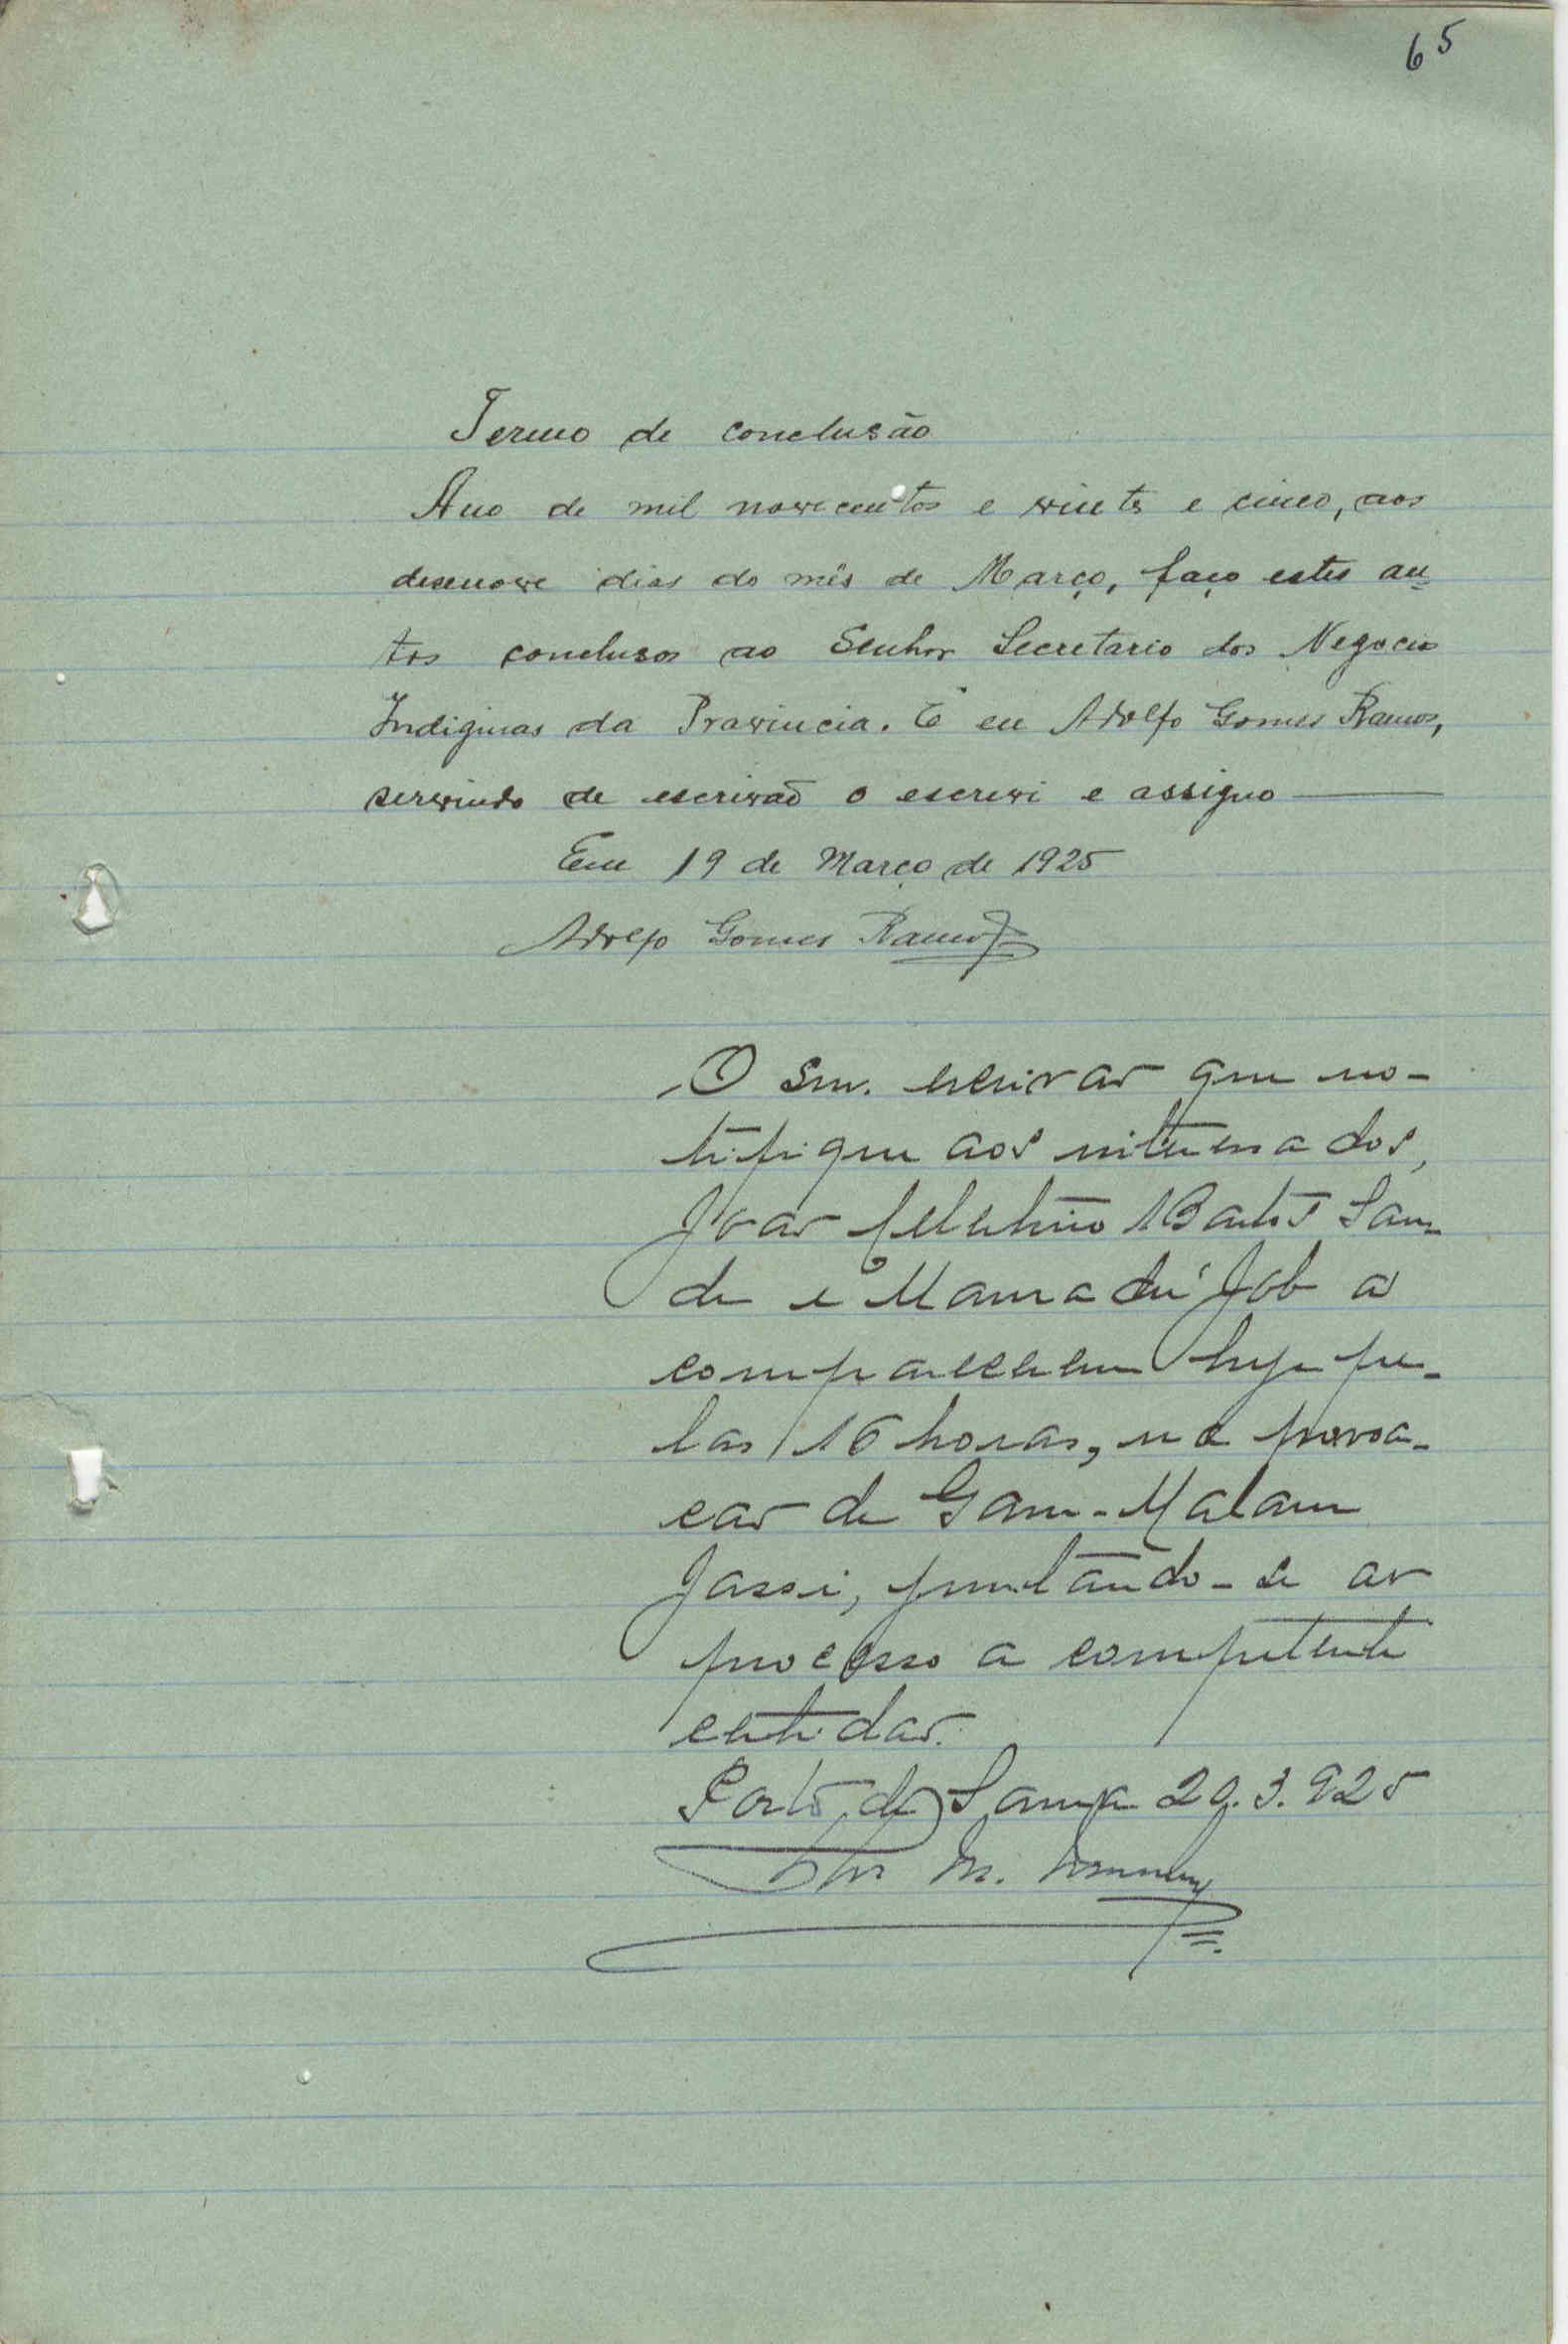 65
Termo de conclusão
Ano de mil novecentos e vinte e cinco, aos
desenove dias do mês de Março, faço estes au=
tos conclusos ao Senhor Secretario dos Negocios
Indiginas da Provincia. E eu Adolfo Gomes Ramos,
servindo de escrivão o escrevi e assigno
Em 19 de Março de 1925
Adolfo Gomes Ramos
O Snr. escrivão que no-
tifique aos interessados,
João Celestino Bartos San
de e Mamadú Job a
comparecerem hoje pe-
las 16 horas, na povoa-
ção de Gam-Malam
Jassi, juntando-se ao
processo a competente
certidão.
Porto de 3.925